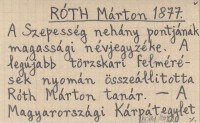 RÓTH Márton 1877.
A Szepesség nehány pontjának
magassági névjegyzéke. A
legújabb törzskari felméré-
sek nyomán összeállította
Róth Márton tanár. — A
Magyarországi Kárpátegylet